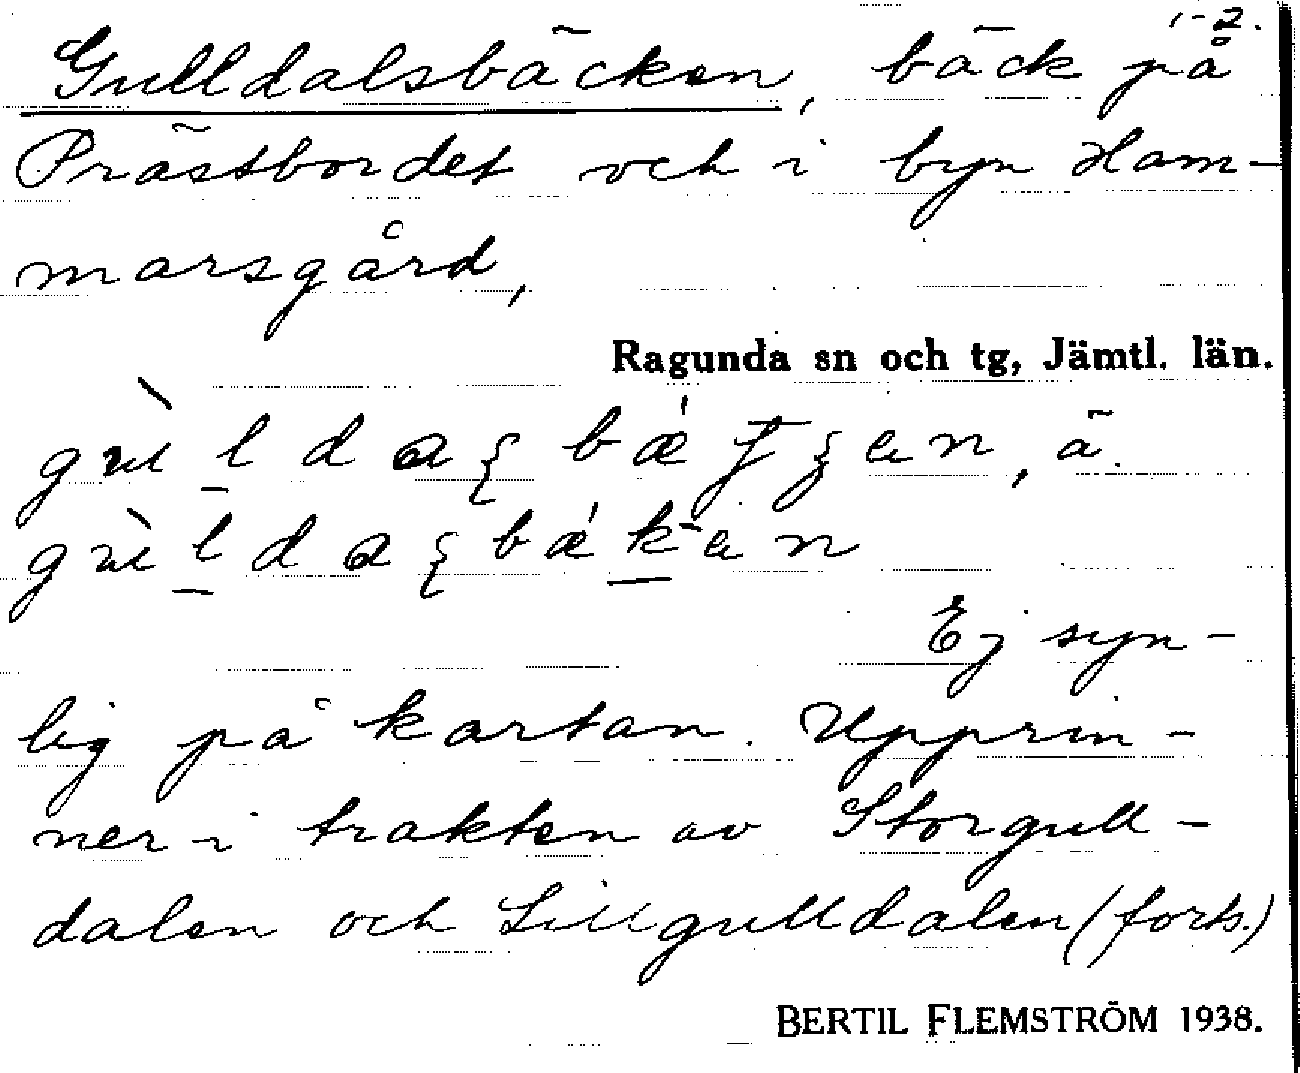 1-2.
Gulldalsbäcken, bäck på
Prästbordet och i byn Ham-
marsgård,
Ragunda sn och tg, Jämtl. län.
Ej syn-
lig på kartan. Upprin-
ner i trakten av Storgull-
dalen och Lillgulldalen (forts.)
BERTIL FLEMSTRÖM 1938.